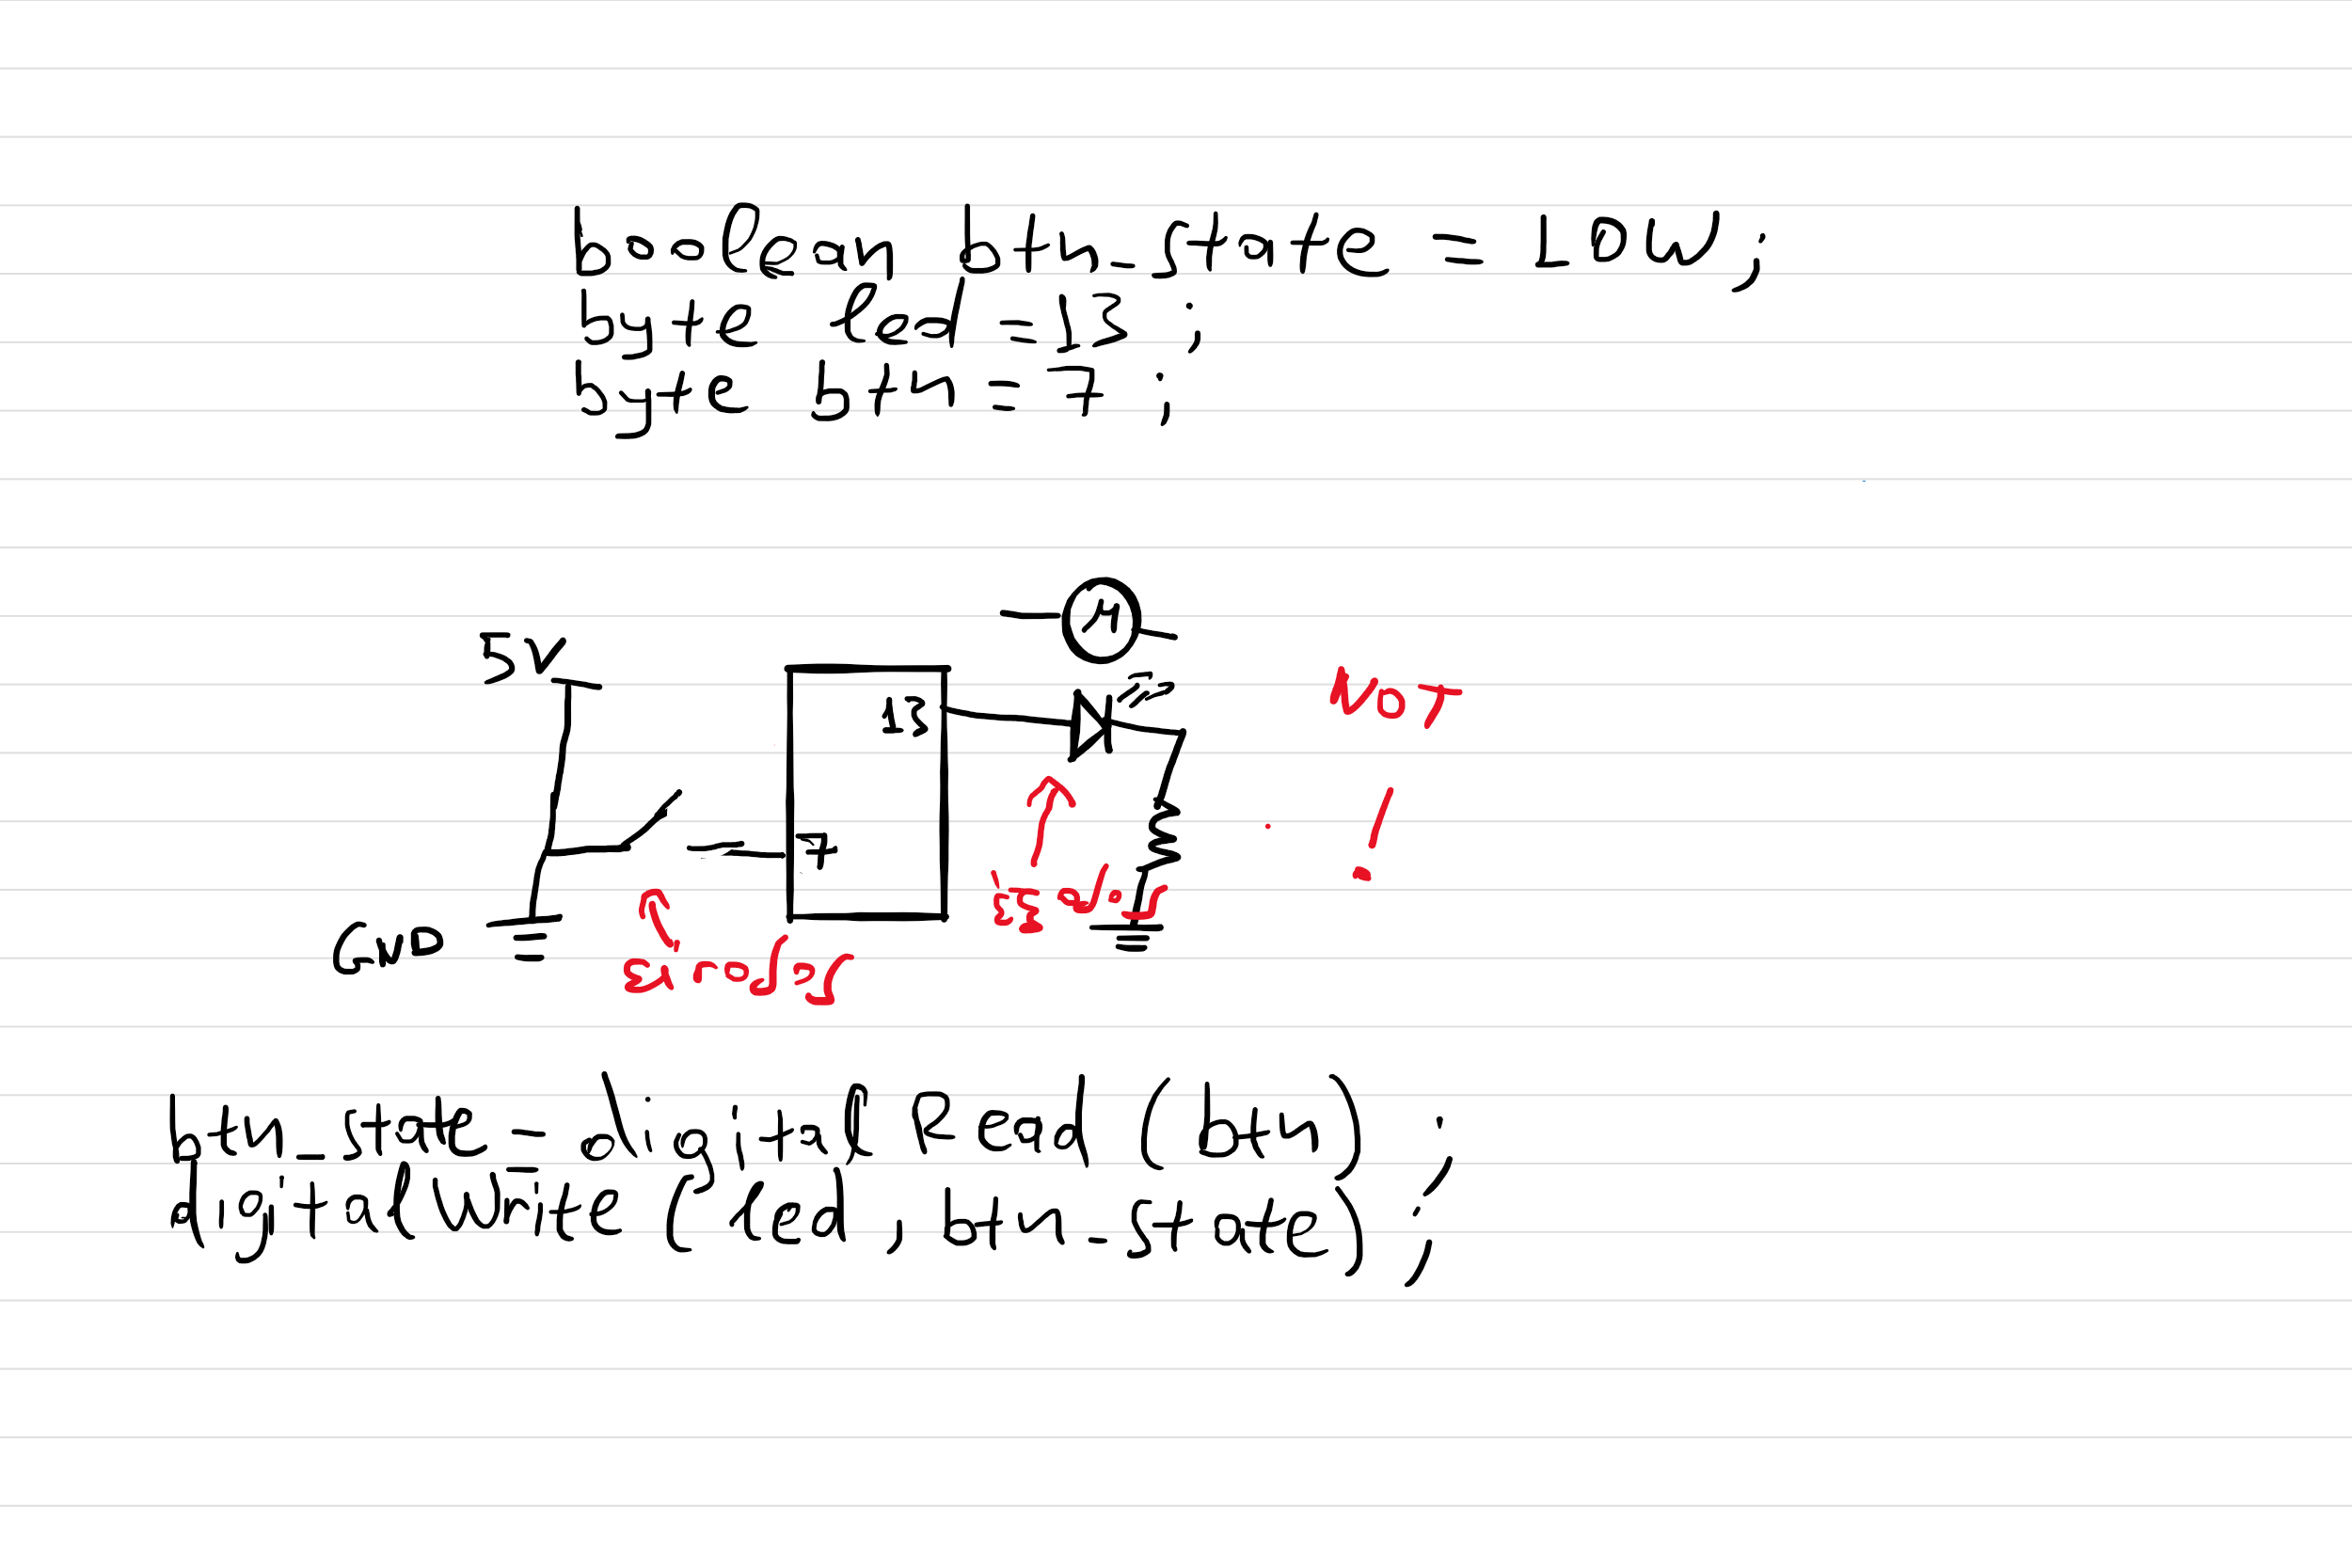 boolean btn_state = LOW;
byte led = 13;
byte btn = 7;
M
5V
13
NOT
!
7
GND
Είσοδος
Έξοδος
btn_state = digital Read (btn);
digitalWrite (led, btn_state);